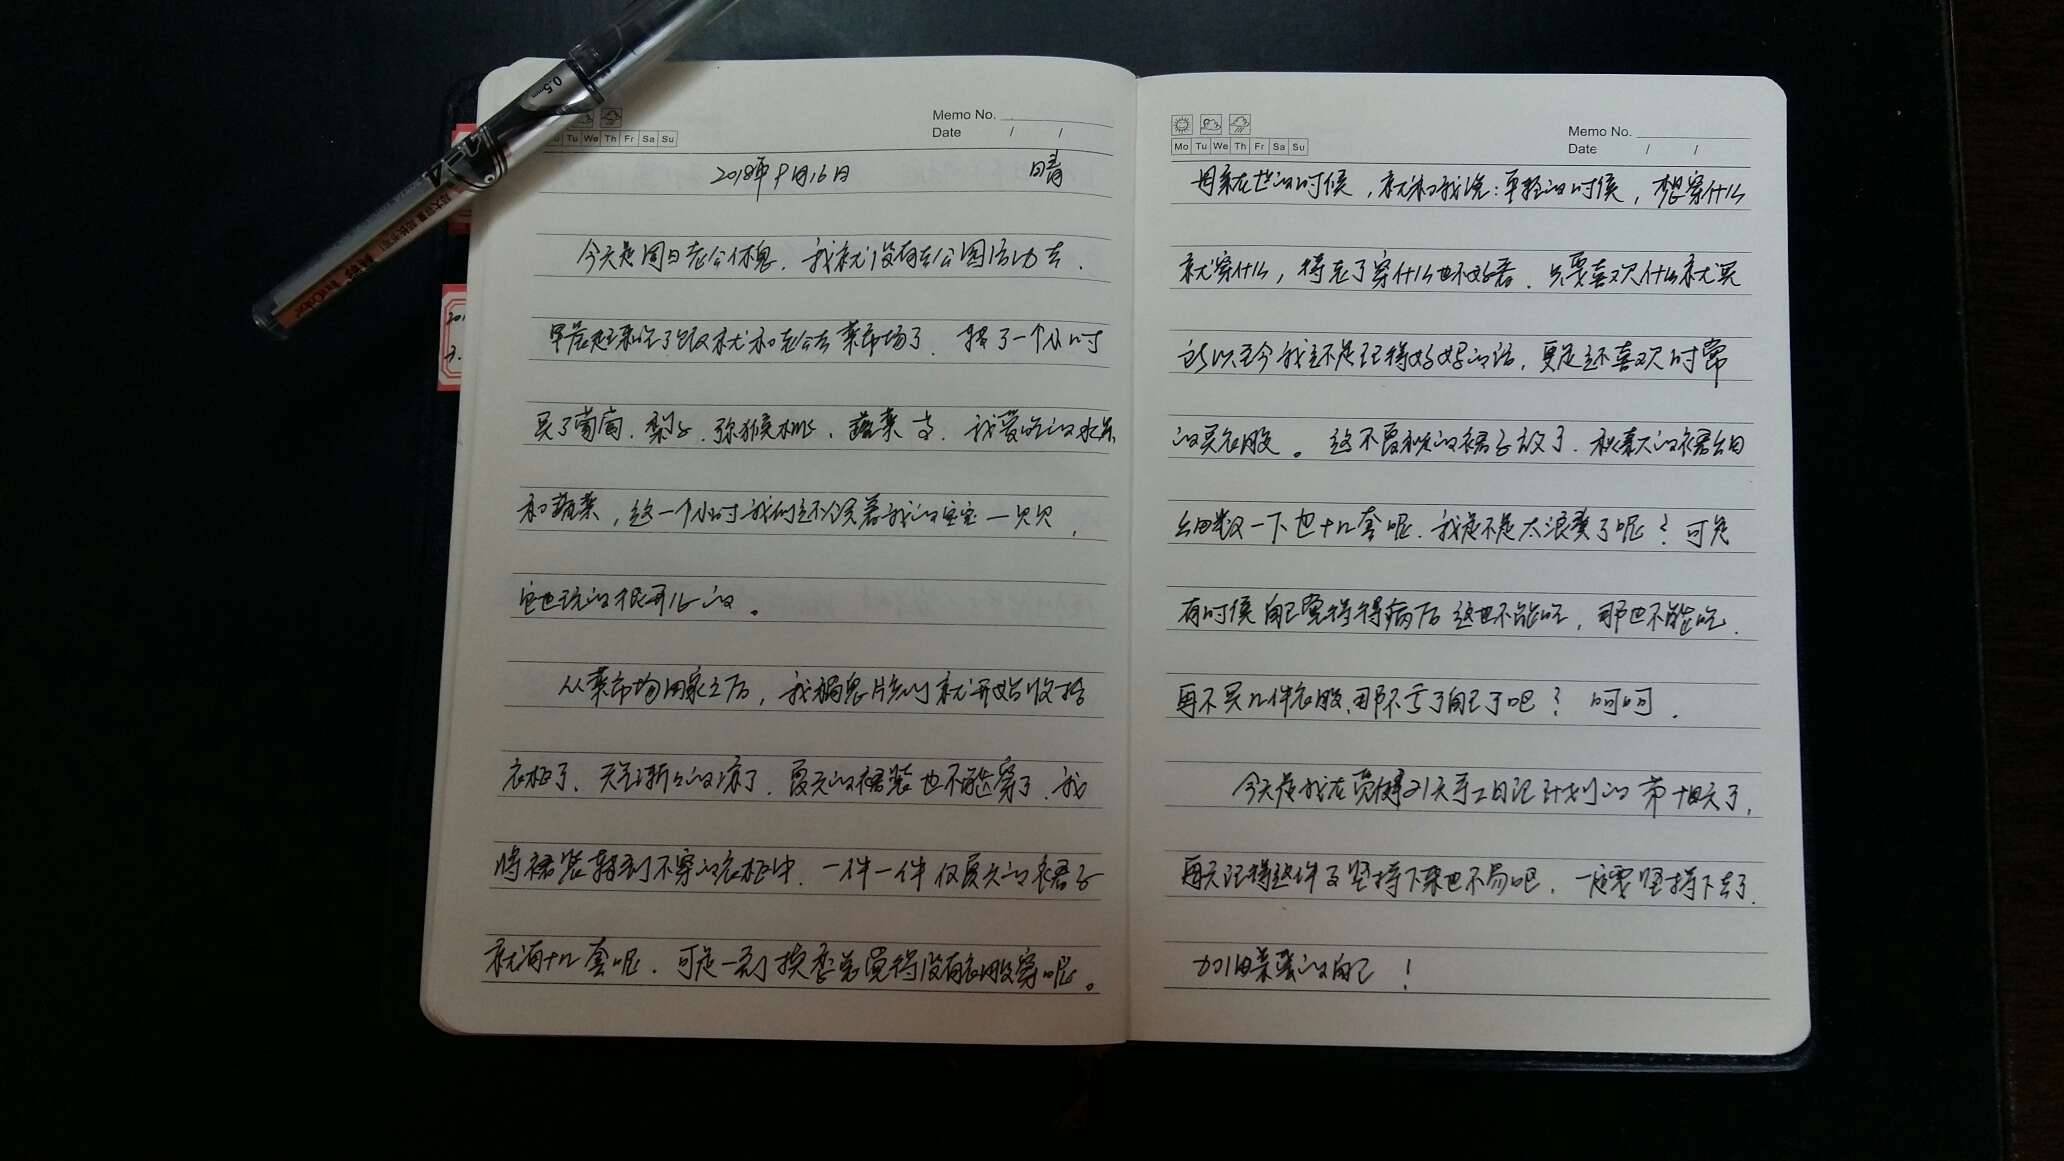 0.5mm
Tu We Th Fr Sa Su
Memo No.
Date / /
2018年9月16日 晴
今天是周日老公休息，我就没有去公园活动去，
早晨起来吃了饭就和老公去菜市场了，转了一个小时
买了葡萄，梨子，弥猴桃，蔬菜等，我爱吃的水果
和蔬菜，这一个小时我们还领着我的宝宝一贝贝，
它也玩的很开心的。
从菜市场回家之后，我稍息片刻就开始收拾
衣柜了，天气渐渐的凉了，夏天的裙装也不能穿了，我
将裙装转到不穿的衣柜中，一件一件仅夏天的裙子
就有十几套呢，可是一到换季总觉得没有衣服穿呢。
Mo Tu We Th Fr Sa Su
Memo No.
Date / /
母亲在世的时候，就和我说：年轻的时候，想穿什么
就穿什么，待老了穿什么也不好看，只要喜欢什么就买
所以至今我还是记得妈妈的话，更是还喜欢时常
的买衣服。这不夏天的裙子放了，秋天的裙细
细数一下也十几套呢，我是不是太浪费了呢？可是
有时候自己觉得得病后这也不能吃，那也不能吃，
再不买几件衣服，那不亏了自己了吧？呵呵，
今天是我在觅健21天手工日记计划的第十四天了，
每天记得这件事坚持下来也不易吧，一定要坚持下去了，
加油亲爱的自己！